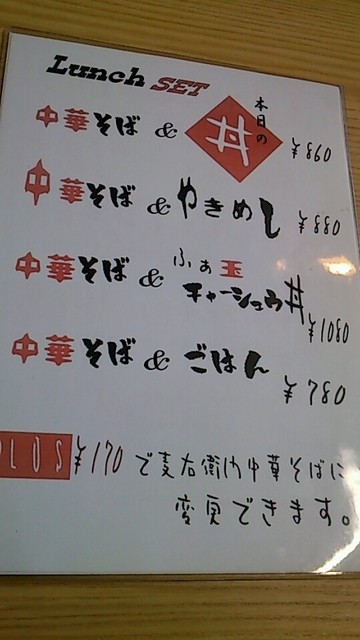 Lunch SET
中華そば & 本日の丼 ¥860
中華そば & やきめし ¥880
中華そば & ふぁ玉チャーシュウ丼 ¥1080
中華そば & ごはん ¥780
PLUS ¥170 で麦右衛門中華そばに
変更できます。